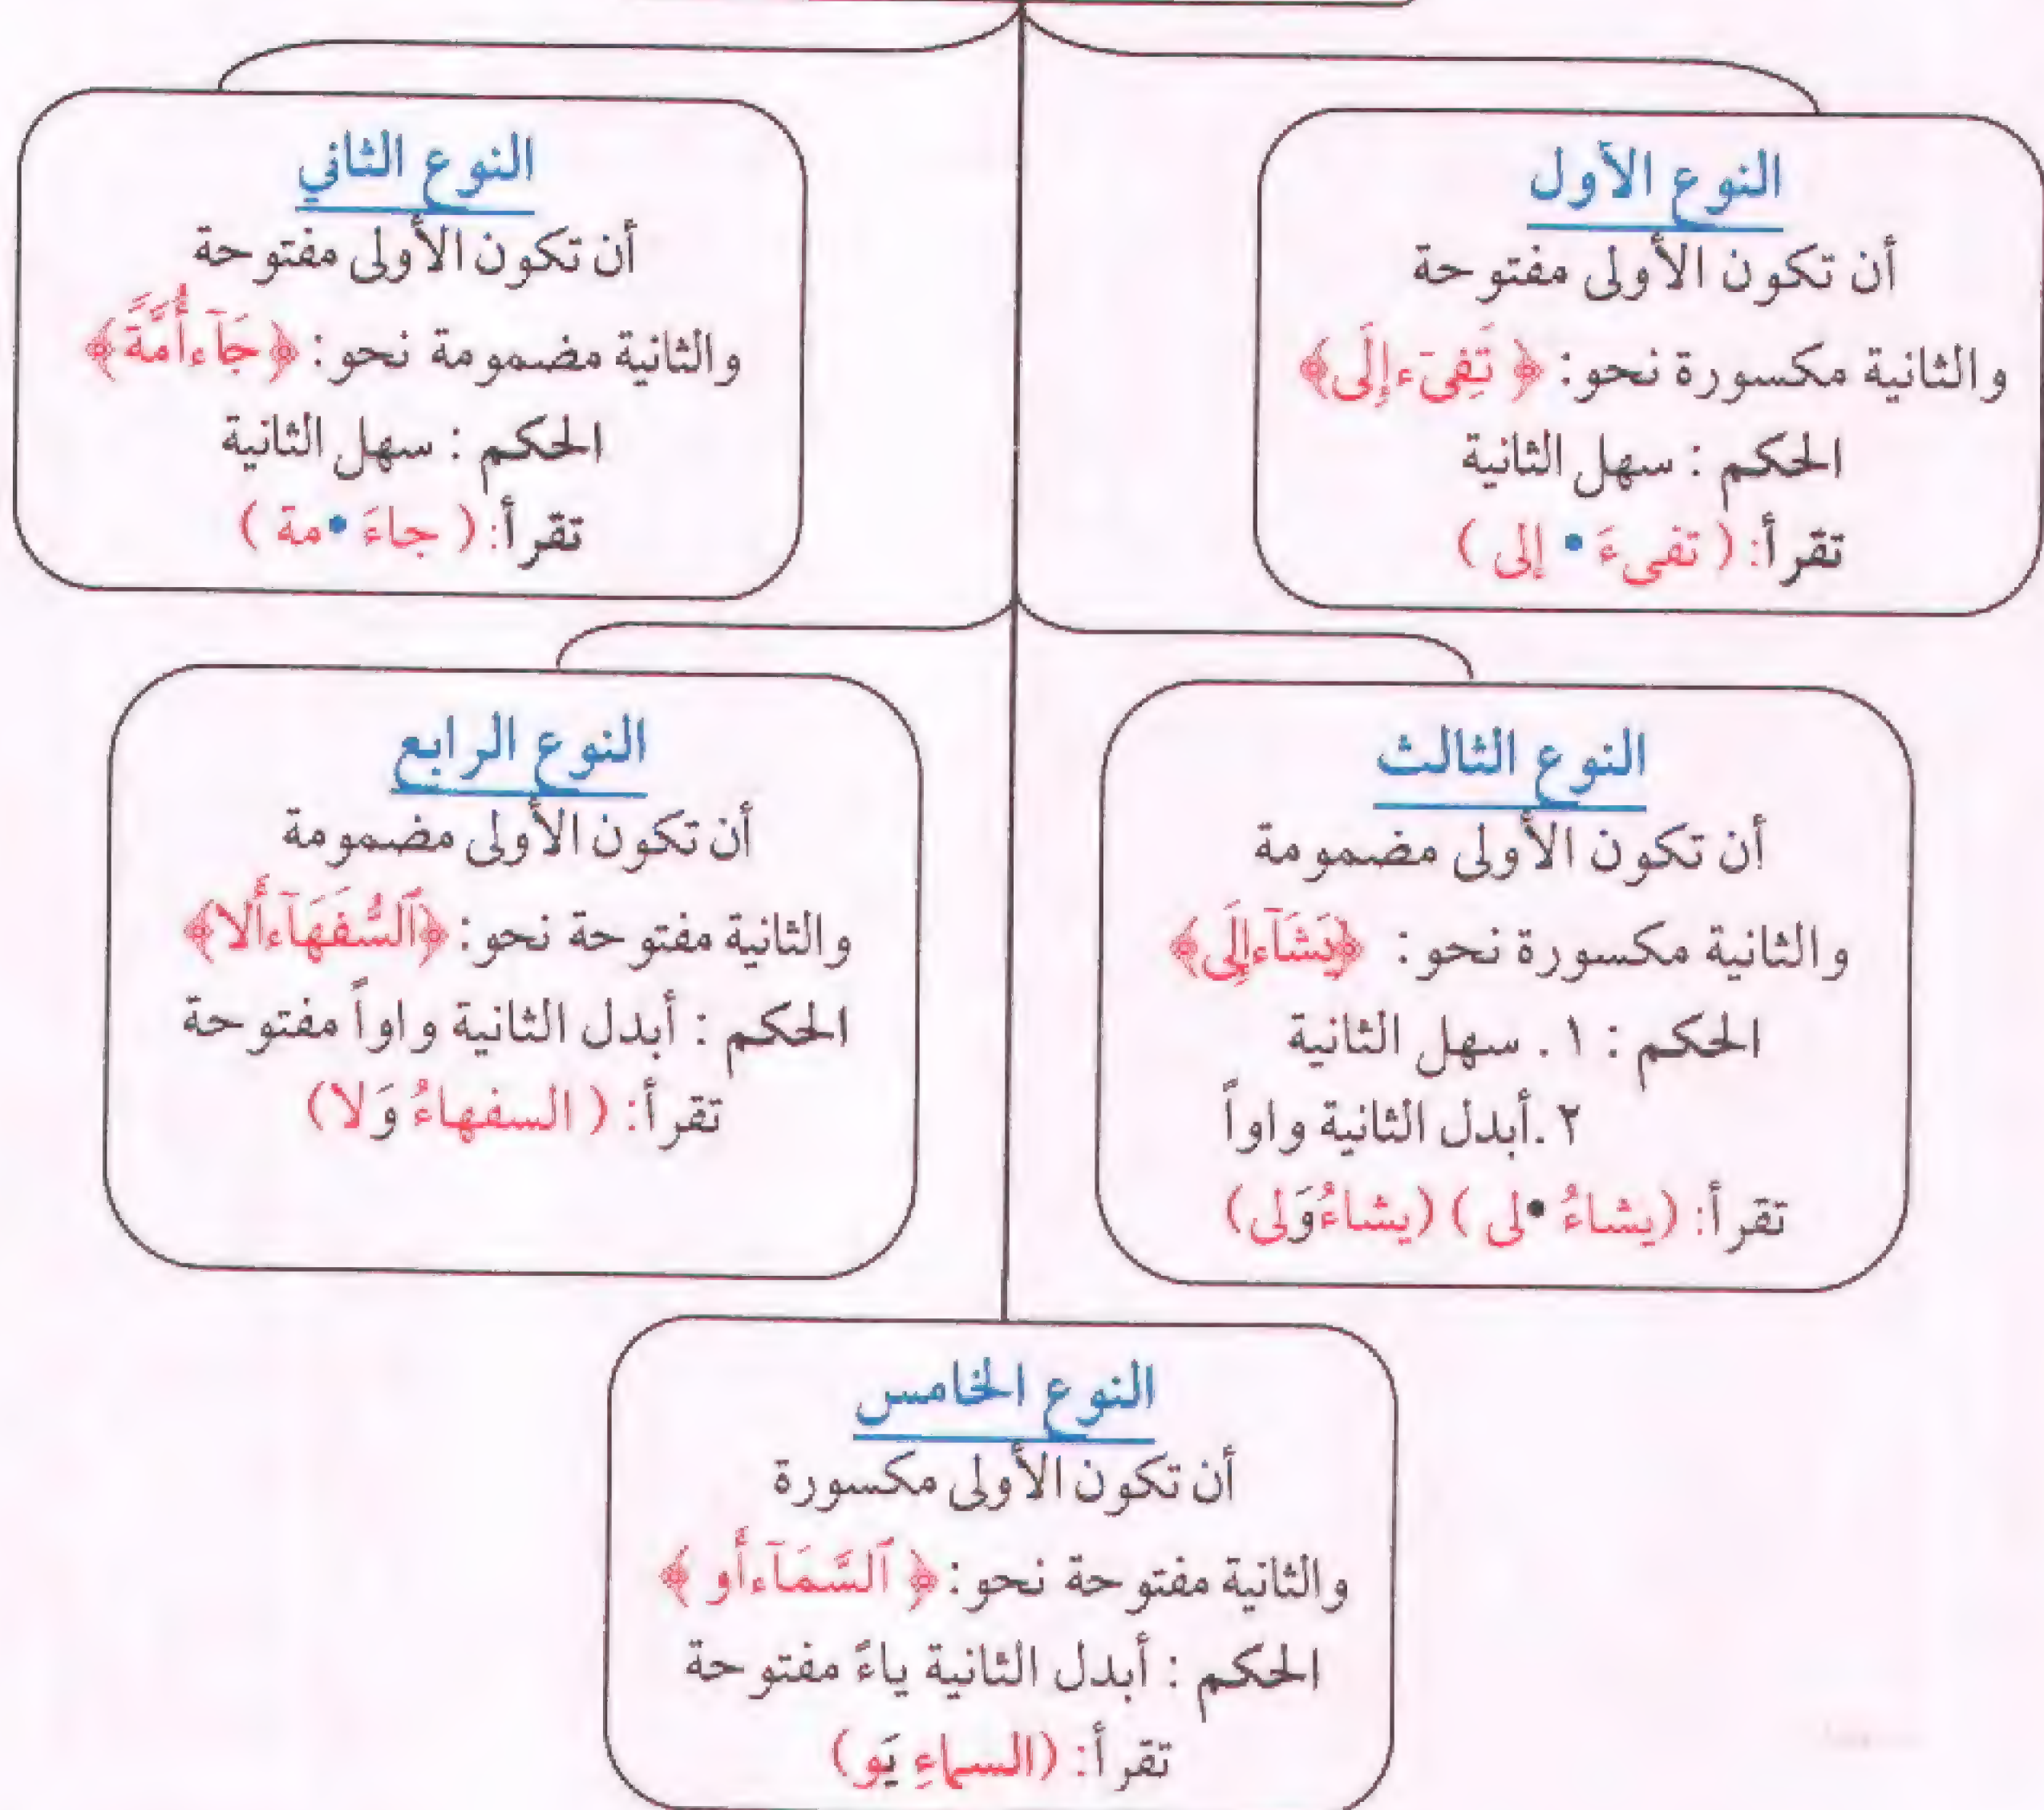 النوع الأول
أن تكون الأولى مفتوحة
والثانية مكسورة نحو: ﴿ تَفِىٓءَ إِلَىٰ ﴾
الحكم : سهل الثانية
تقرأ: ( تفىءَ • إلى )
النوع الثاني
أن تكون الأولى مفتوحة
والثانية مضمومة نحو: ﴿ جَآءَ أُمَّةً ﴾
الحكم : سهل الثانية
تقرأ: ( جاءَ •مة )
النوع الثالث
أن تكون الأولى مضمومة
والثانية مكسورة نحو: ﴿يَشَآءُ إِلَىٰ﴾
الحكم : ١ . سهل الثانية
٢ .أبدل الثانية واواً
تقرأ: (يشاءُ •لى ) (يشاءُ وَلى)
النوع الرابع
أن تكون الأولى مضمومة
والثانية مفتوحة نحو: ﴿ٱلسُّفَهَآءُ أَلَا﴾
الحكم : أبدل الثانية واواً مفتوحة
تقرأ: ( السفهاءُ وَلا)
النوع الخامس
أن تكون الأولى مكسورة
والثانية مفتوحة نحو: ﴿ ٱلسَّمَآءِ أَو ﴾
الحكم : أبدل الثانية ياءً مفتوحة
تقرأ: (السماءِ يَو)